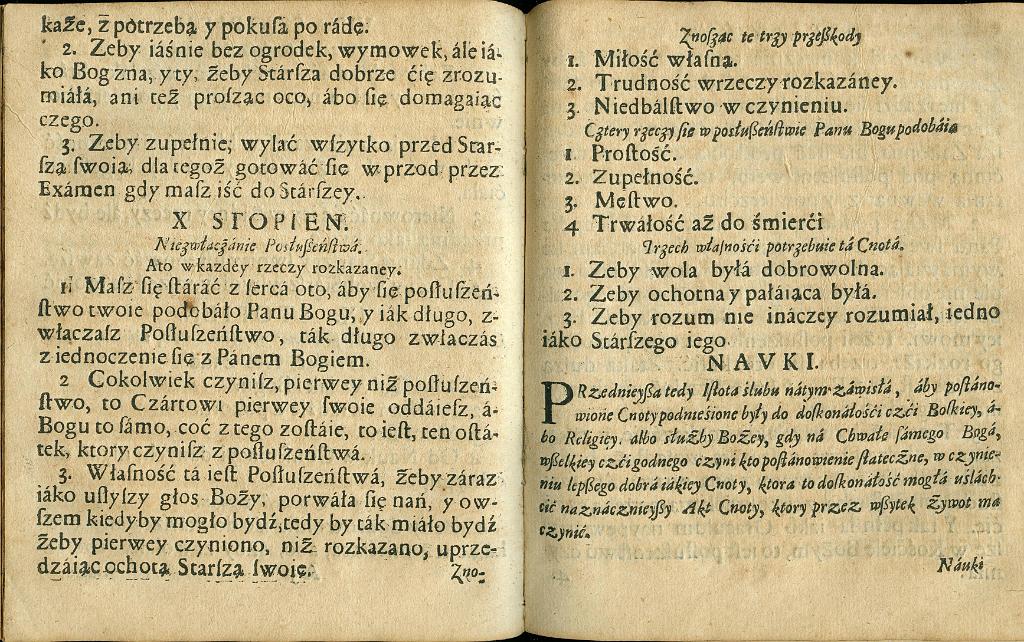 każe, z potrzebą y pokuſa po rádę.
2. Zeby iáśnie bez ogrodek, wymowek, ále iá-
ko Bog zna, y ty, żeby Stárſza dobrze ćię zrozu-
miáłá, ani też proſząc oco, ábo ſię domagaiąc
czego.
3. Zeby zupełnie, wylać wſzytko przed Star-
ſzą ſwoią, dla tegoż gotowáć ſię w przod przez
Exámen gdy maſz iść do Stárſzey.
X STOPIEN.
Niezwłaczánie Poſłuſzeńſtwá.
A to w kazdey rzeczy rozkazaney.
1. Maſz ſię ſtáráć z ſercá oto, áby ſię poſłuſzeń-
ſtwo twoie podobáło Panu Bogu, y iák długo, z-
włączaſz Poſłuſzeńſtwo, ták długo zwłaczás
z iednoczenie ſię z Pánem Bogiem.
2 Cokolwiek czyniſz, pierwey niż poſłuſzeń-
ſtwo, to Czártowi pierwey ſwoie oddáieſz, á-
Bogu to ſámo, coć z tego zoſtáie, to ieſt, ten oſtá-
tek, ktory czyniſz z poſłuſzeńſtwá.
3. Właſność tá ieſt Poſłuſzeńſtwá, żeby záraz
iáko uſłyſzy głos Boży, porwáła ſię nań, y ow-
ſzem kiedyby mogło bydź, tedy by ták miáło bydź
żeby pierwey czyniono, niż rozkazano, uprze-
dzáiąc ochotą Starſzą ſwoię.
Zno-
Znoſząc te trzy przeſzkody
1. Miłość właſna.
2. Trudność w rzeczy rozkazáney.
3. Niedbálſtwo w czynieniu.
Cztery rzeczy ſię w poſłuſzeńſtwie Panu Bogu podobáią
1. Proſtość.
2. Zupełność.
3. Meſtwo.
4 Trwáłość aż do śmierći
Trzech właſnośći potrzebuie tá Cnotá.
1. Zeby wola byłá dobrowolna.
2. Zeby ochotna y pałáiąca byłá.
3. Zeby rozum nie ináczey rozumiał, iedno
iáko Stárſzego iego.
NAUKI.
PRzednieyſza tedy Iſtota ślubu ná tym záwisłá, áby poſtáno-
wione Cnoty podnieśione były do doſkonáłośći czći Boſkiey, á-
bo Religiey, albo służby Bożey, gdy ná Chwałe ſámego Bogá,
wſzelkiey czći godnego czyni kto poſtánowienie ſtateczne, w czynie-
niu lepſzego dobrá iákiey Cnoty, ktora to doſkonáłość mogłá uślách-
cić naznácznieyſzy Akt Cnoty, ktory przez wſzytek żywot ma
czynić.
Náuki